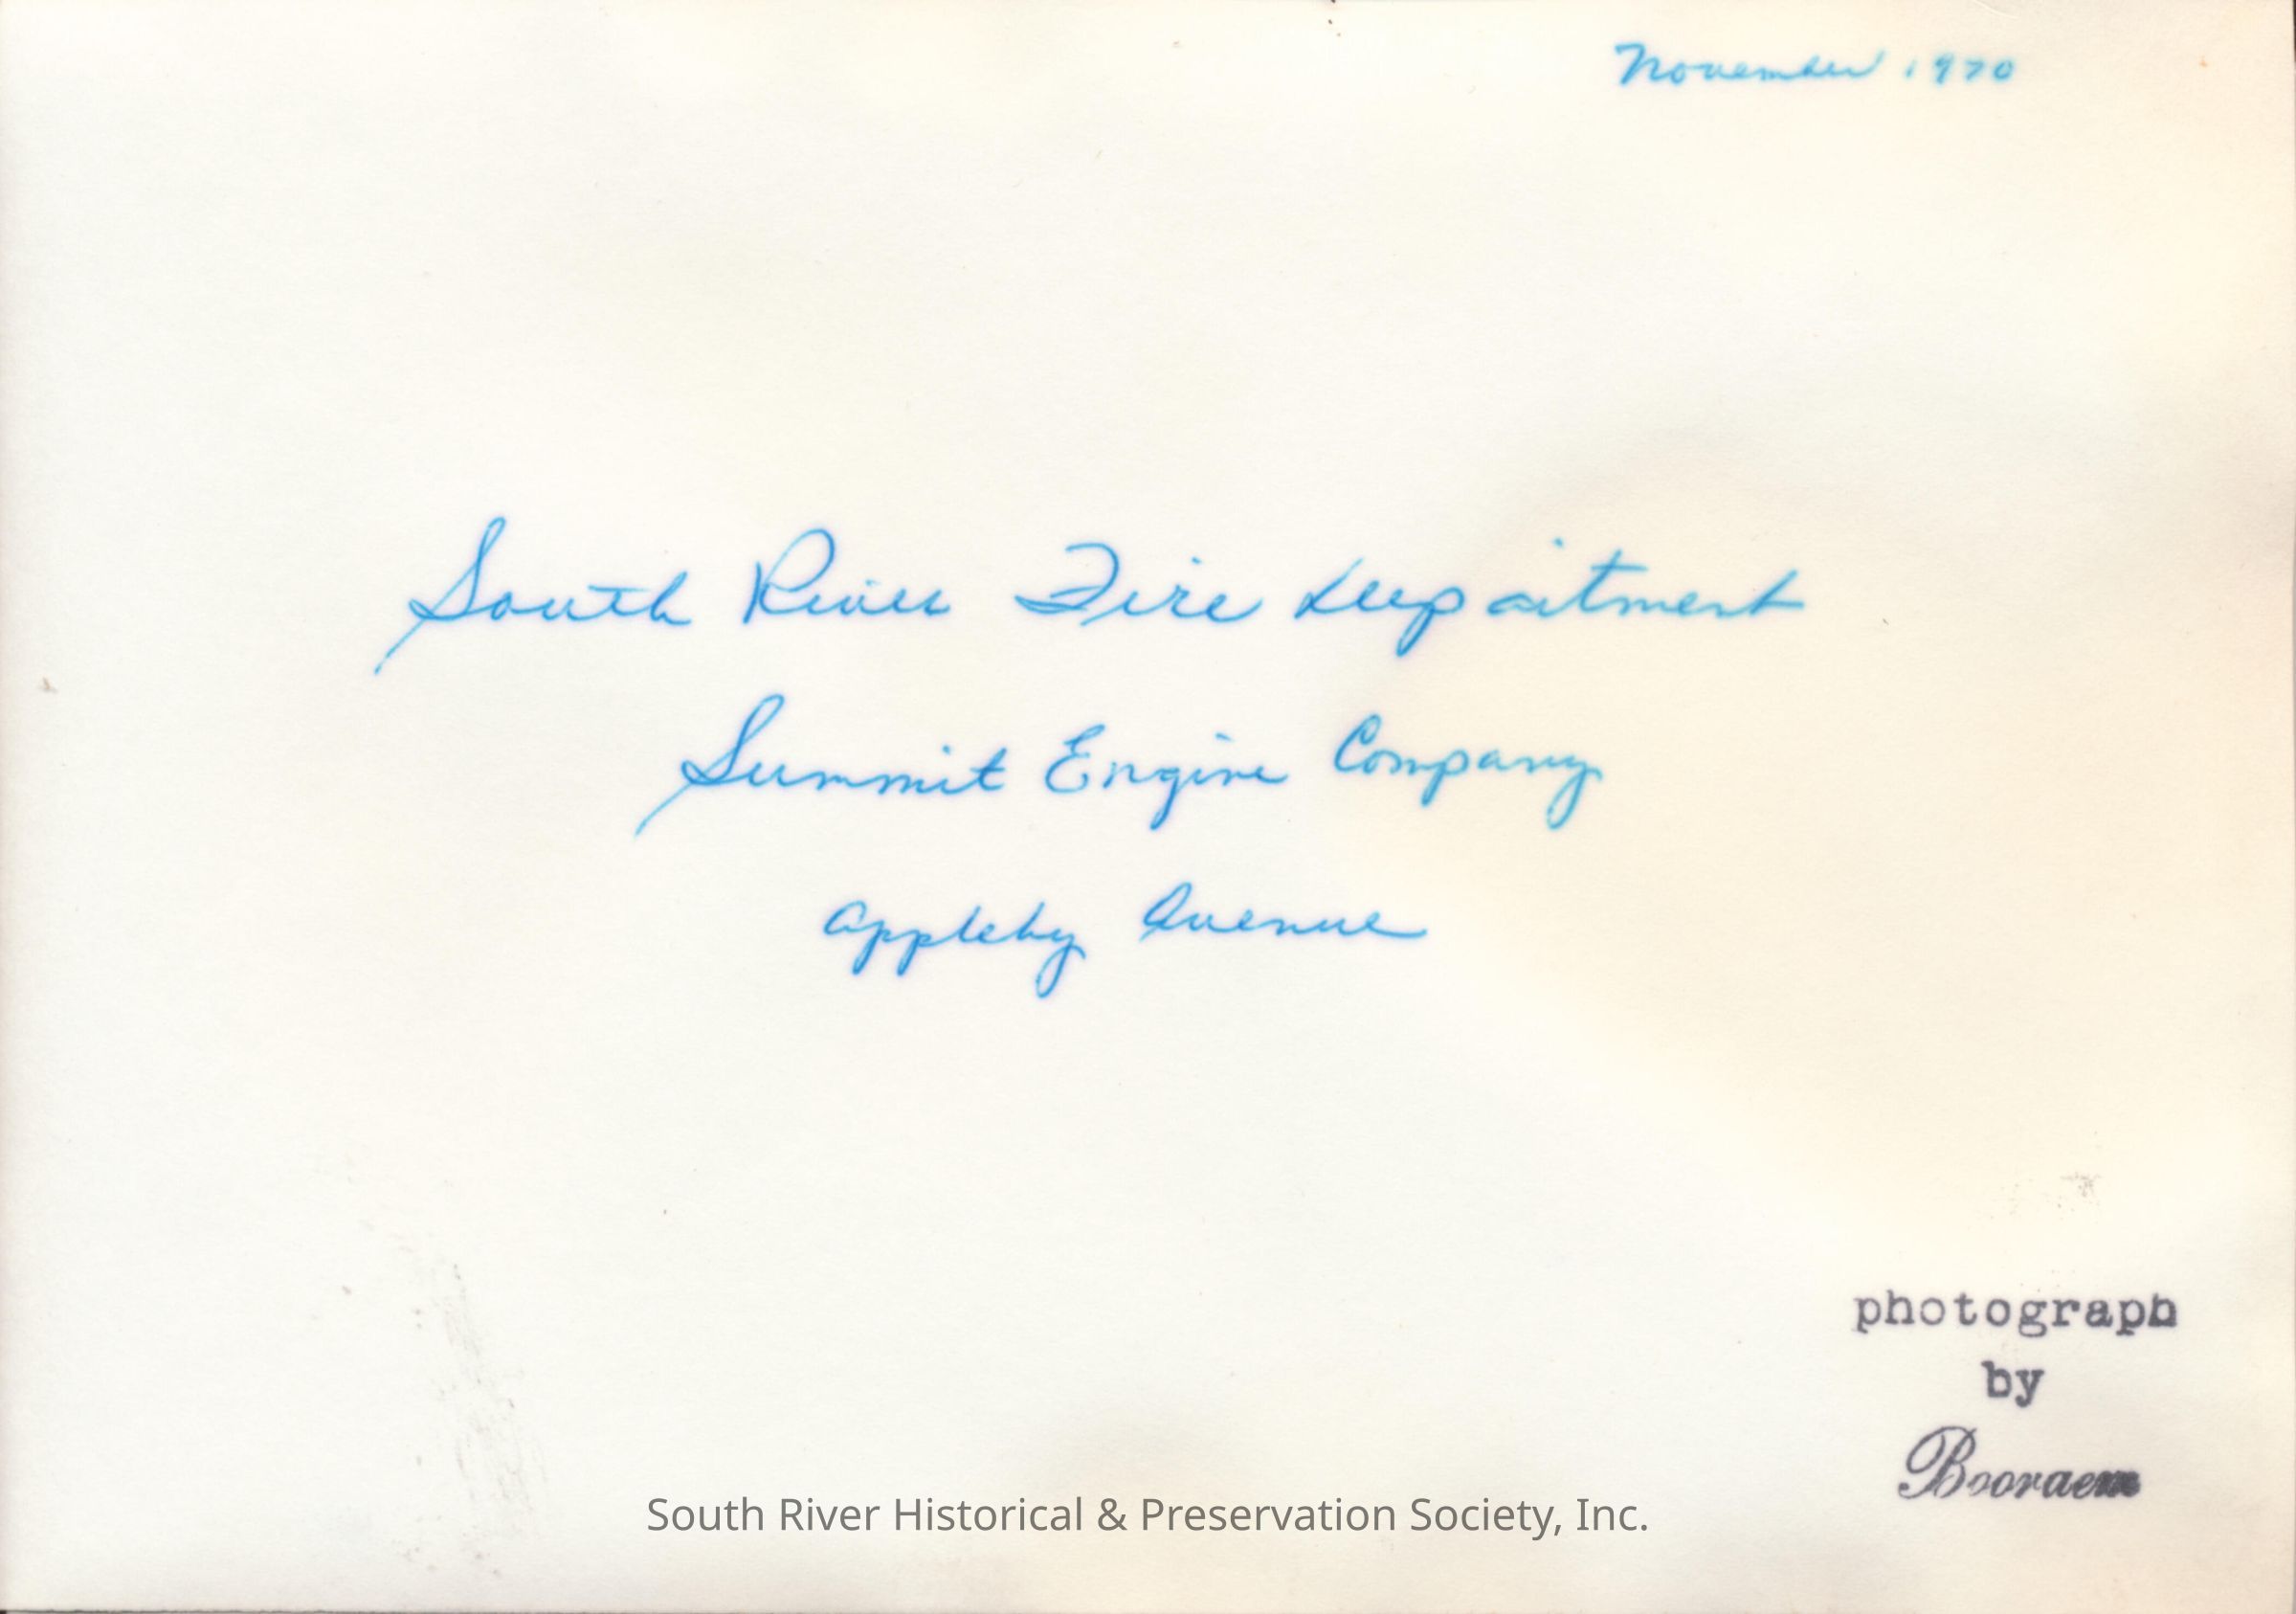 November 1970
South River Fire Department
Summit Engine Company
Appleby Avenue
photograph
by
Booraem
South River Historical & Preservation Society, Inc.